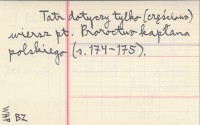 Tatr dotyczy tylko (częściowo)
wiersz pt. Proroctwo kapłana
polskiego (s. 174-175).
BZ